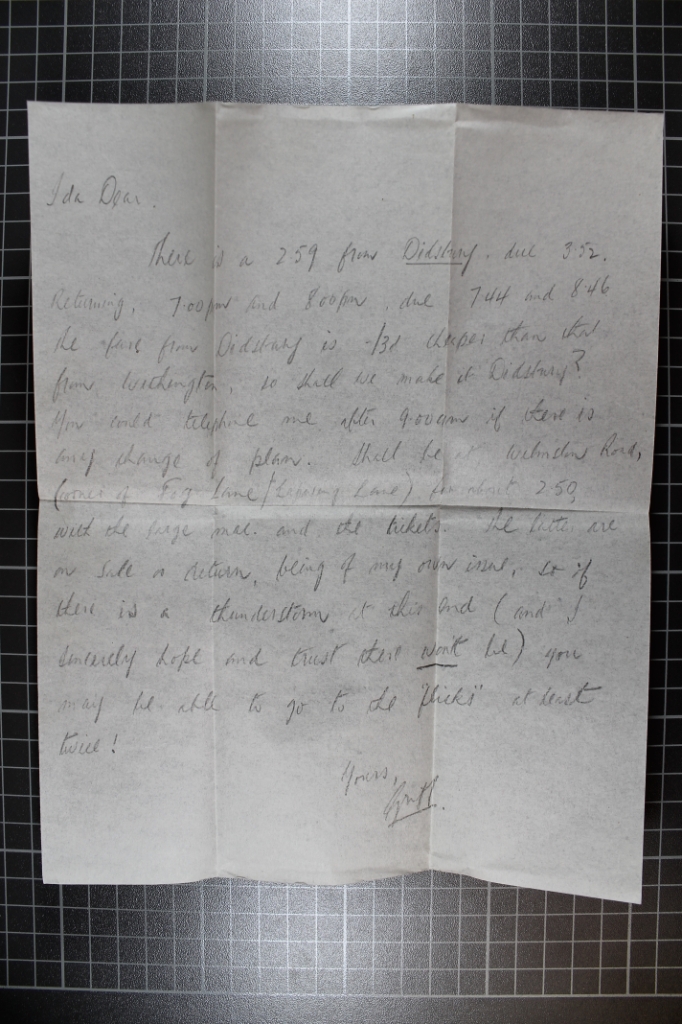 Ida Dear.
There is a 2.59 from Didsbury, due 3.52.
Returning, 7.00pm and 8.00pm, due 7.44 and 8.46
The fare from Didsbury is -/3d cheaper than that
from Withington, so shall we make it Didsbury?
You could telephone me after 9.00am if there is
any change of plan. Shall be at Wilmslow Road,
(corner of Fog Lane / Lapwing Lane) for about 2.50,
with the large mac. and the tickets. The latter are
on sale or return, being of my own issue, so if
there is a thunderstorm at this end (and I
sincerely hope and trust there won't be) you
may be able to go to the "flicks" at least
twice!
Yours,